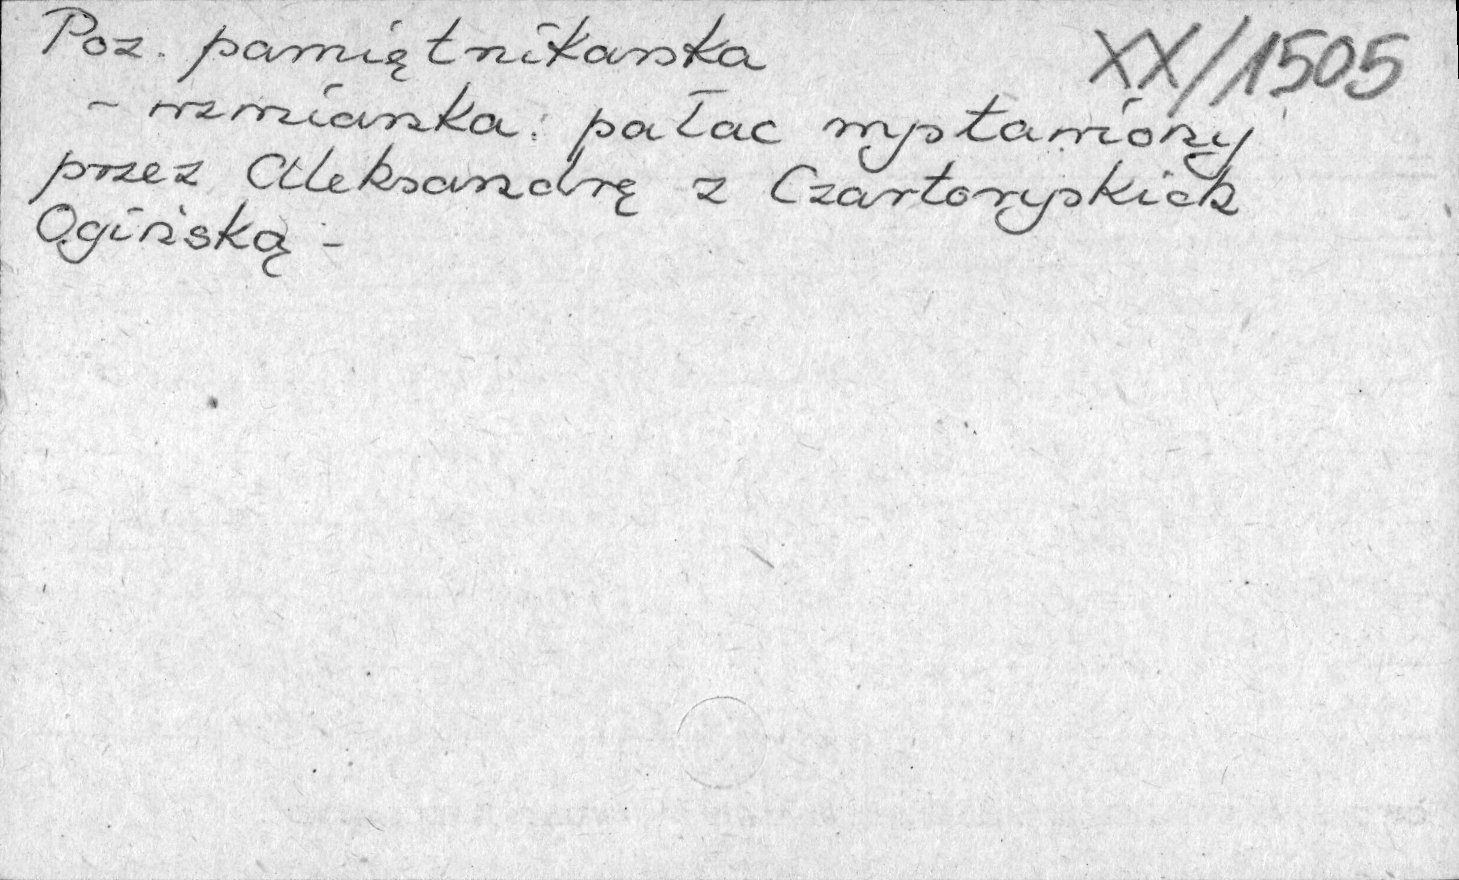 Poz. pamiętnikarska XX/1505
- wzmianka: pałac wystawiony
przez Aleksandrę z Czartoryskich
Ogińską -